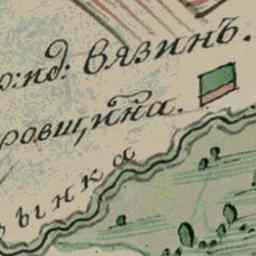 р: пд: Вязинъ.
ровщина.
зынка